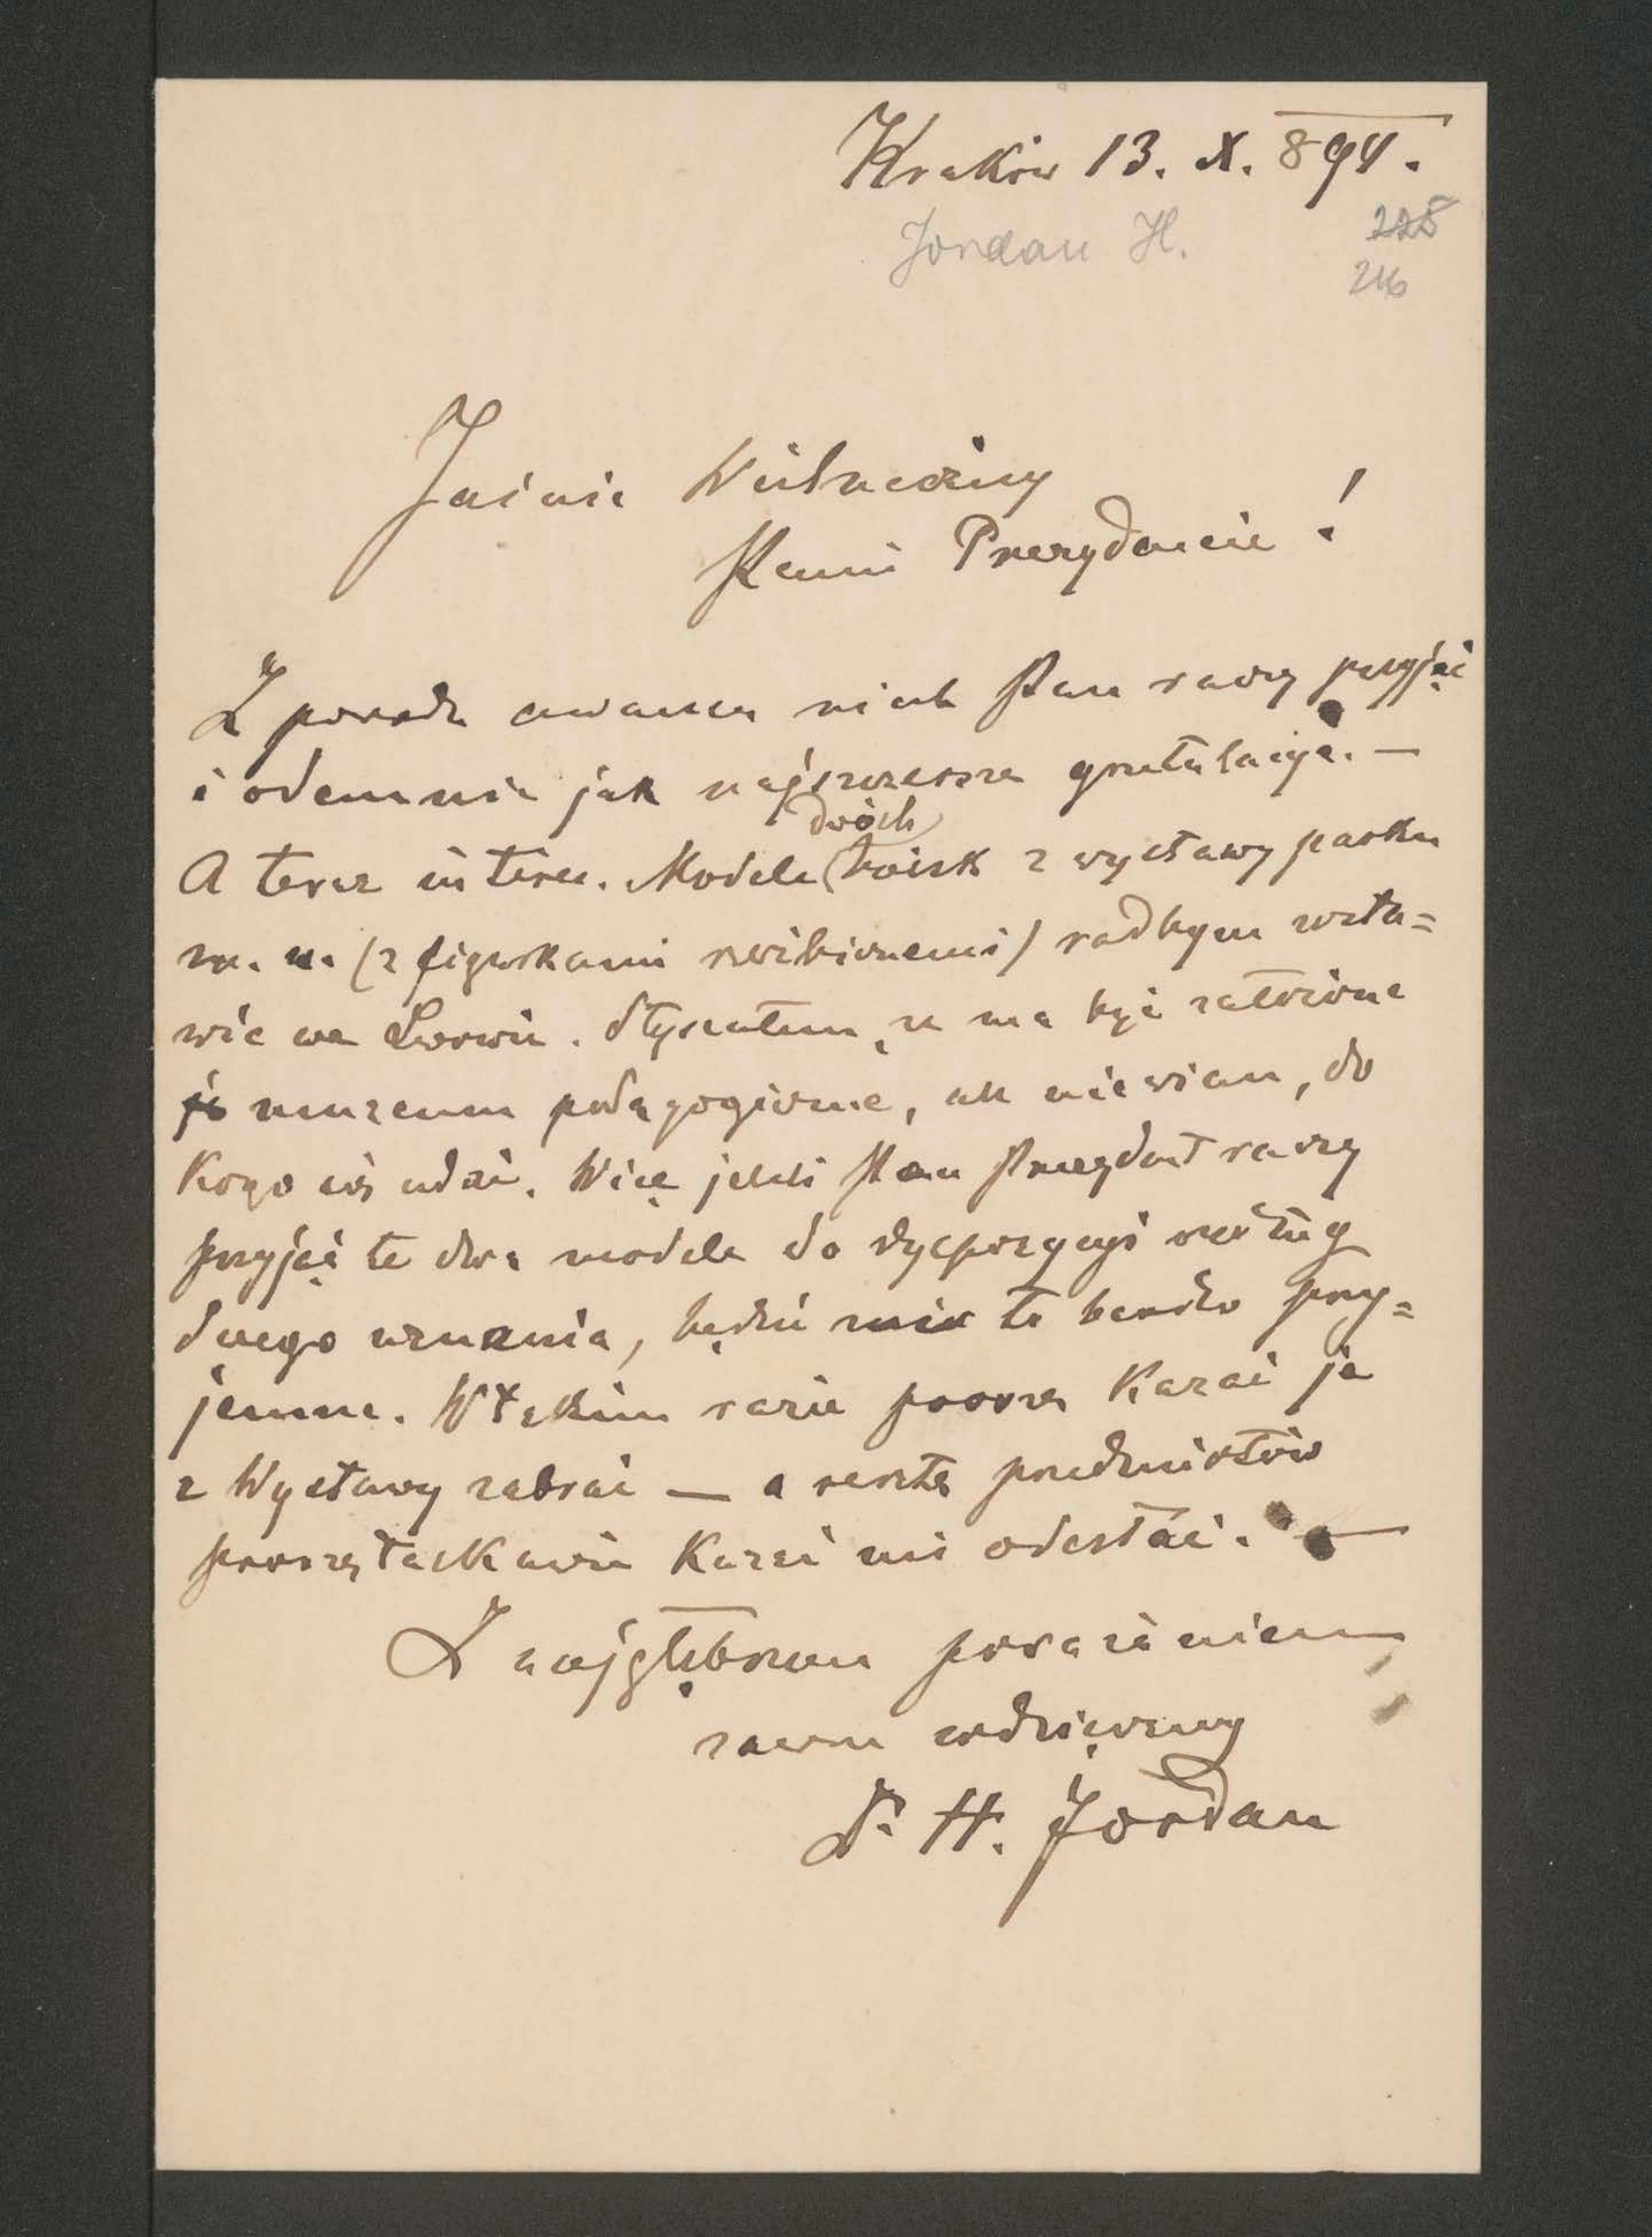 Kraków 13. X. 894.
Jordan H.
225
216
Jaśnie Wielmożny
Panie Prezydencie!
Z powodu awansu niech Pan raczy przyjąć
i odemnie jak najszczersze gratulacje. —
A teraz interes. Modele dwóch boisk z wystawy parku
m. (z figurkami ćwiczącemi) radbym zosta=
wić we Lwowie. Słyszałem, że ma być założone
muzeum pedagogiczne, ale nie wiem, do
kogo się udać. Więc jeżeli Pan Prezydent raczy
przyjąć te dwa modele do dyspozycyi według
Swego uznania, będzie mi to bardzo przy=
jemne. W takim razie proszę kazać je
z Wystawy zabrać — a resztę przedmiotów
proszę łaskawie kazać mi odesłać. —
Z najgłębszem poważaniem
zawsze wdzięczny
Dr H. Jordan